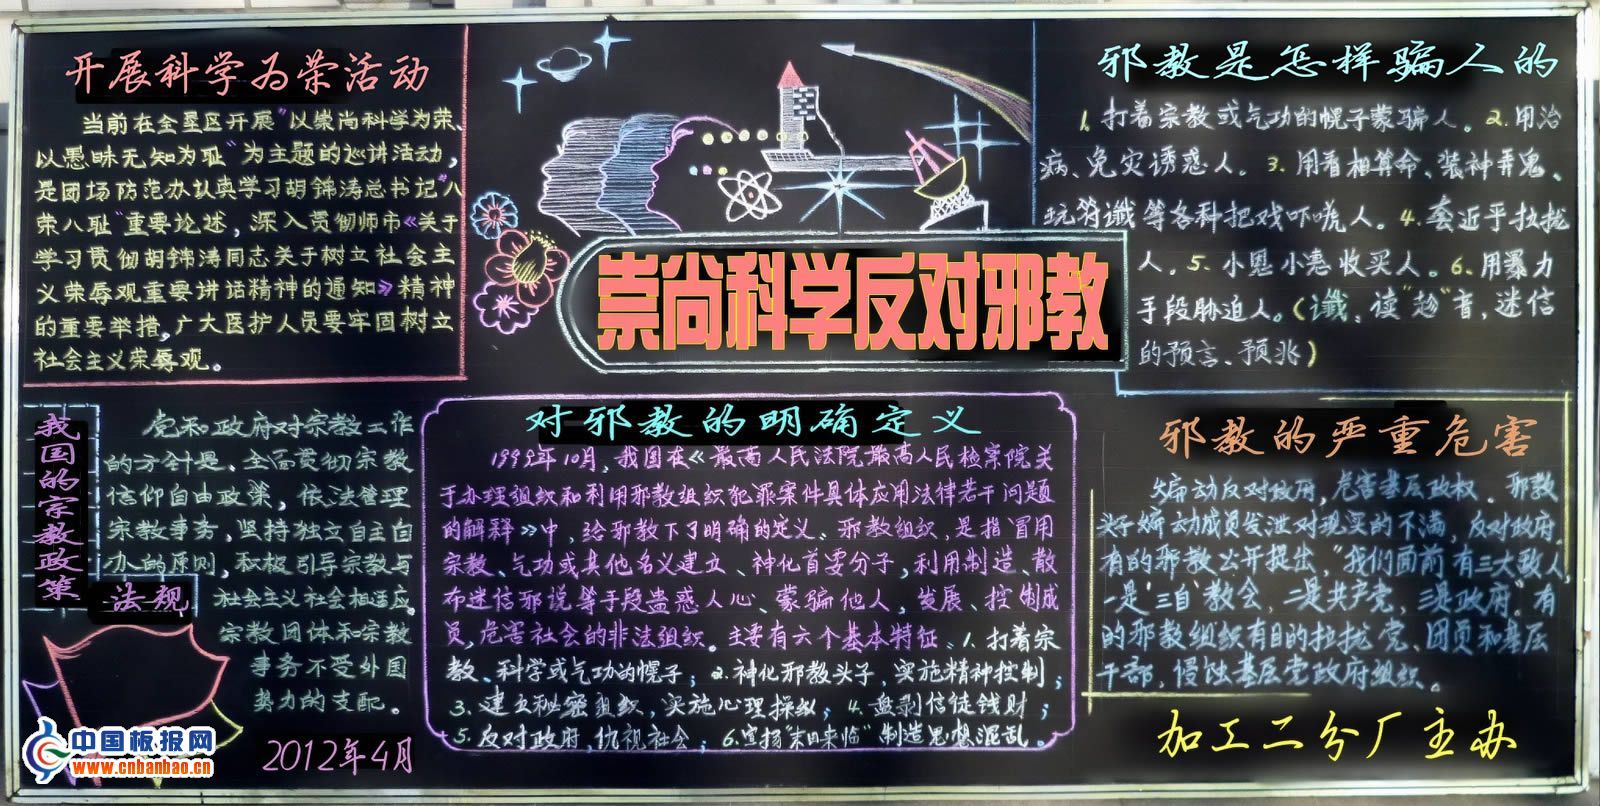 开展科学为荣活动
当前在全垦区开展"以崇尚科学为荣、
以愚昧无知为耻"为主题的巡讲活动，
是团场防范办认真学习胡锦涛总书记"八
荣八耻"重要论述，深入贯彻师市《关于
学习贯彻胡锦涛同志关于树立社会主
义荣辱观重要讲话精神的通知》精神
的重要举措，广大医护人员要牢固树立
社会主义荣辱观。
崇尚科学反对邪教
邪教是怎样骗人的
1、打着宗教或气功的幌子蒙骗人。2.用治
病、免灾诱惑人。3.用看相算命、装神弄鬼、
玩符谶等各种把戏吓唬人。4.套近乎拉拢
人。5.小恩小惠收买人。6.用暴力
手段胁迫人。(谶、读"趁"音，迷信
的预言、预兆)
我国的宗教政策
法规
党和政府对宗教工作
的方针是、全面贯彻宗教
信仰自由政策，依法管理
宗教事务，坚持独立自主自
办的原则，积极引导宗教与
社会主义社会相适应。
宗教团体和宗教
事务不受外国
势力的支配。
2012年4月
对邪教的明确定义
1999年10月，我国在《最高人民法院最高人民检察院关
于办理组织和利用邪教组织犯罪案件具体应用法律若干问题
的解释》中，给邪教下了明确的定义、邪教组织，是指冒用
宗教、气功或其他名义建立、神化首要分子，利用制造、散
布迷信邪说等手段蛊惑人心、蒙骗他人，发展、控制成
员，危害社会的非法组织。主要有六个基本特征、1.打着宗
教、科学或气功的幌子；2.神化邪教头子，实施精神控制；
3.建立秘密组织，实施心理操纵；4.盘剥信徒钱财；
5.反对政府，仇视社会；6.宣扬"末日来临"制造思想混乱。
邪教的严重危害
煽动反对政府，危害基层政权、邪教
头子煽动成员发泄对现实的不满，反对政府，
有的邪教公开提出，"我们面前有三大敌人，
一是'三自'教会，二是共产党，三是政府"。有
的邪教组织有目的拉拢党、团员和基层
干部，侵蚀基层党政府组织。
加工二分厂主办
中国板报网
www.cnbanbao.cn